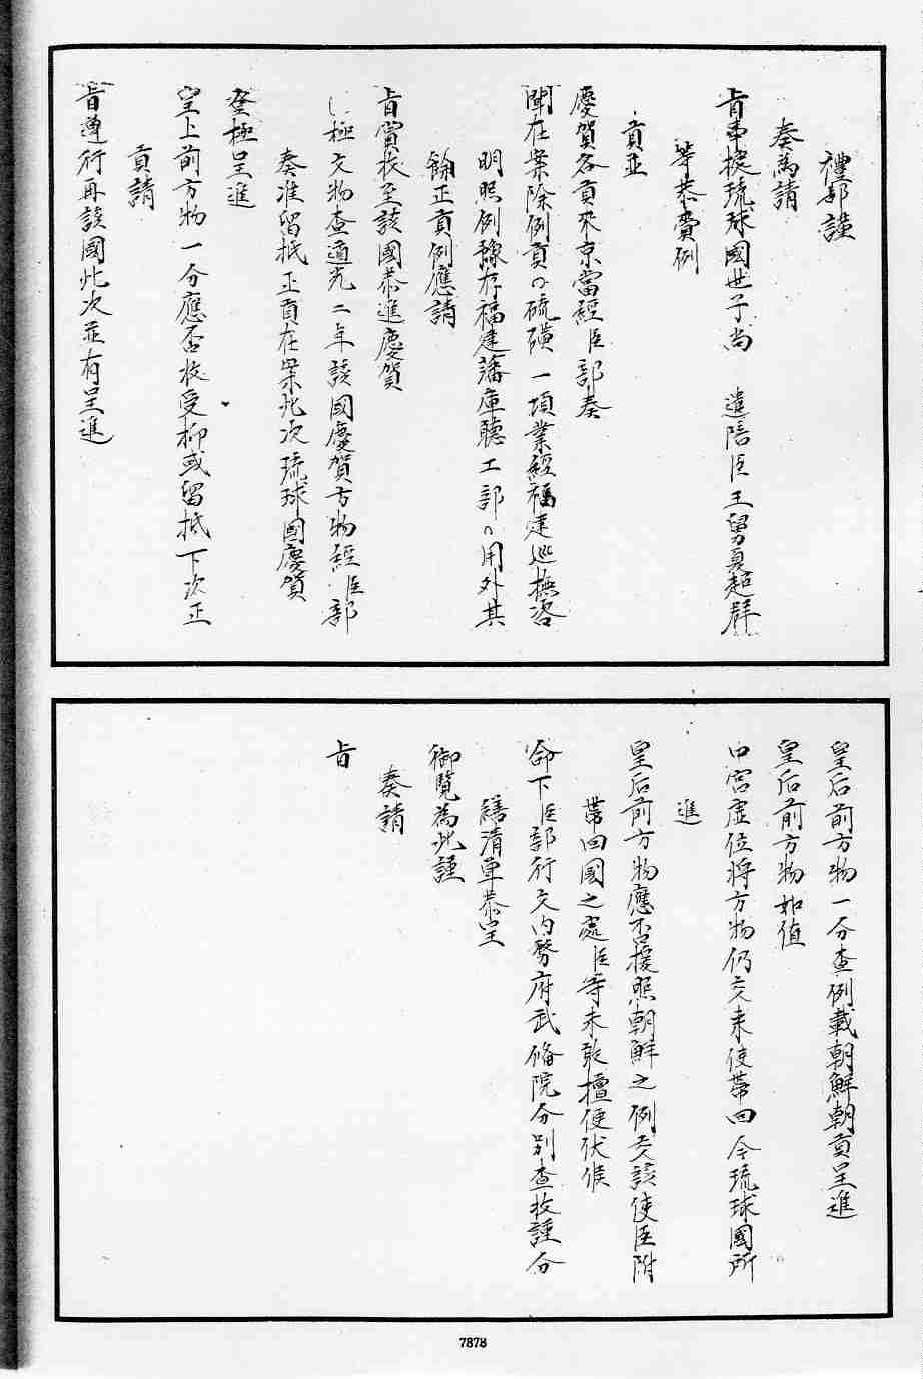 禮部謹
奏為請
旨事據琉球國世子尚　遣陪臣王舅夏超群
等恭賫例
貢並
慶賀各貢來京當經臣部奏
聞在案除例貢內硫磺一項業經福建巡撫咨
明照例穄存福建藩庫聽工部內用外其
餘正貢例應請
旨賞收至該國恭進慶賀
極文物查道光二年該國慶賀方物經臣部
奏准留抵正貢在案此次琉球國慶賀
登極呈進
皇上前方物一分應否收受抑或留抵下次正
貢請
旨遵行再該國此次並有呈進
皇后前方物一分查例載朝鮮朝貢呈進
皇后前方物如值
中宮虛位將方物仍交来使帶回今琉球國所
進
皇后前方物應否援照朝鮮之例交該使臣附
帶回國之處臣等未敢擅便伏候
命下臣部行文內務府武備院分別查收謹分
繕清單恭呈
御覽為此謹
奏請
旨
7878